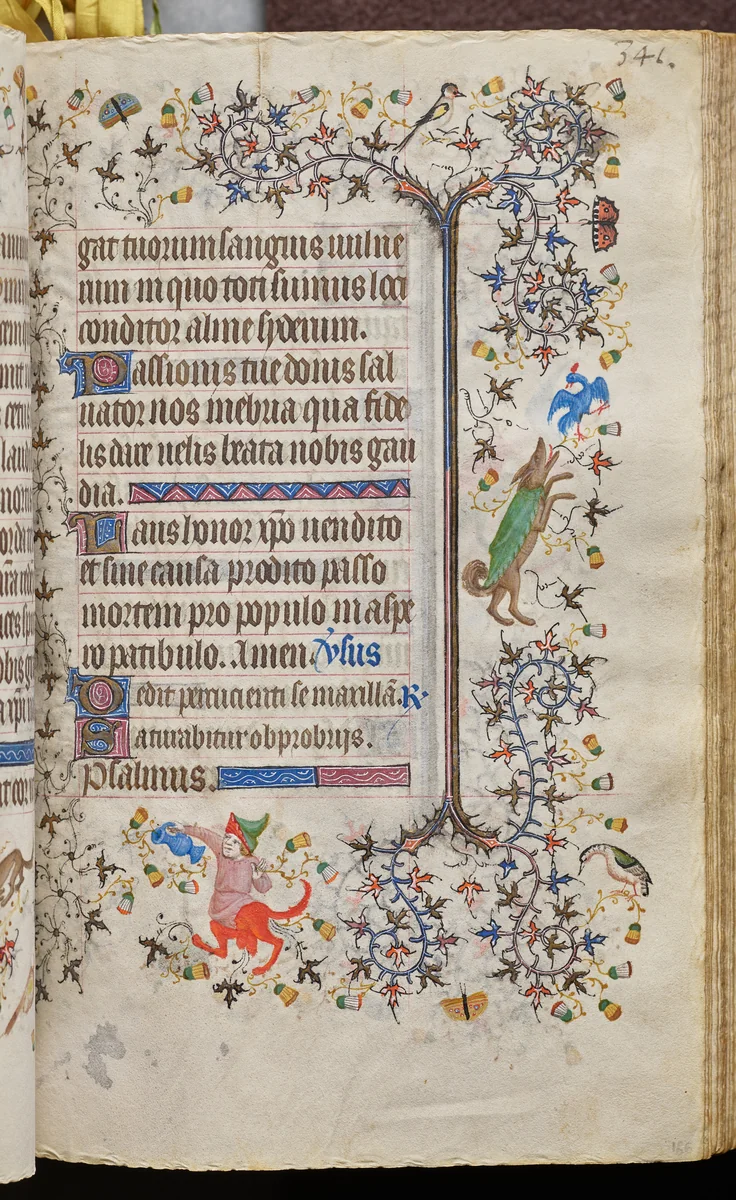 346.
gat tuorum sanguis uulne
rum in quo toti sumus loti
conditor alme syderum.
Passionis tue donis sal
uator nos inebria qua fide
lis dare uelis beata nobis gau
dia.
Laus honor xpo uendito
et sine causa prodito passo
mortem pro populo in aspe
ro patibulo. Amen. Vsus
Dedit percucienti se maxillã. R.
Saturabitur obprobrijs.
Psalmus.